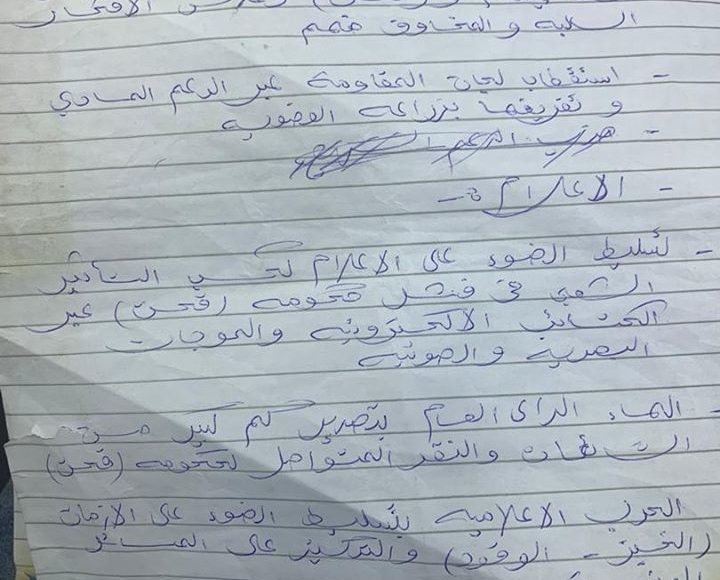 الافكار
السالبة والمخاوف ضمنهم
- استقطاب لجان المقاومة عبر الدعم المادي
و تفريقها بزراعة العضوية
-
- الاعلام :-
- تسليط الضوء على الاعلام لكسب التأثير
الشعبي في فشل حكومه (قحت) عبر
الكتائب الالكترونيه والموجات
البصرية والصوتيه
- الهاء الراى العام بتصدير كم كبير من
الشائعات والنقد المتواصل لحكومه (قحت)
الحرب الاعلاميه بتسليط الضوء على الازمات
(الخبز - الوقود) والتركيز على المسائل